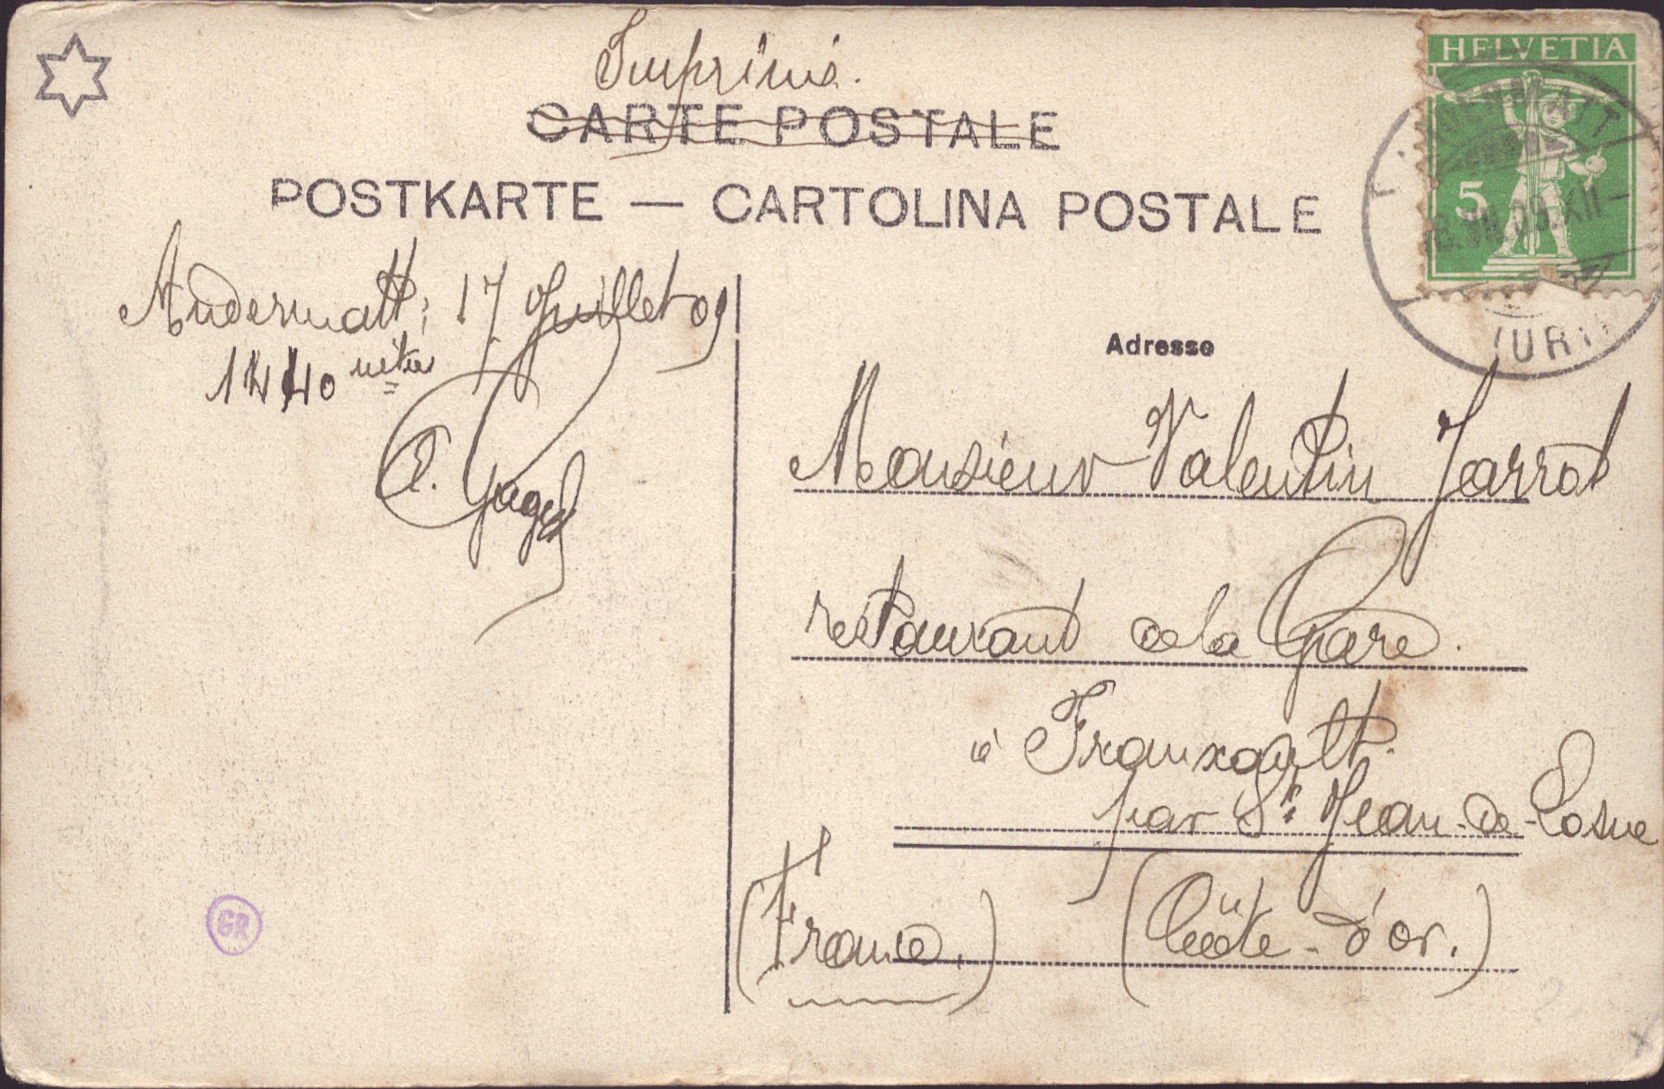 Imprimé.
CARTE POSTALE
POSTKARTE — CARTOLINA POSTALE
HELVETIA
5
ANDERMATT
(URI)
Andermatt, 17 Juillet 09
1440 mètres
Adresse
Monsieur Valentin Jarrot
restaurant de la Gare.
à Franxault.
par St. Jean-de-Losne
(Côte-d'or.)
(France.)
GR